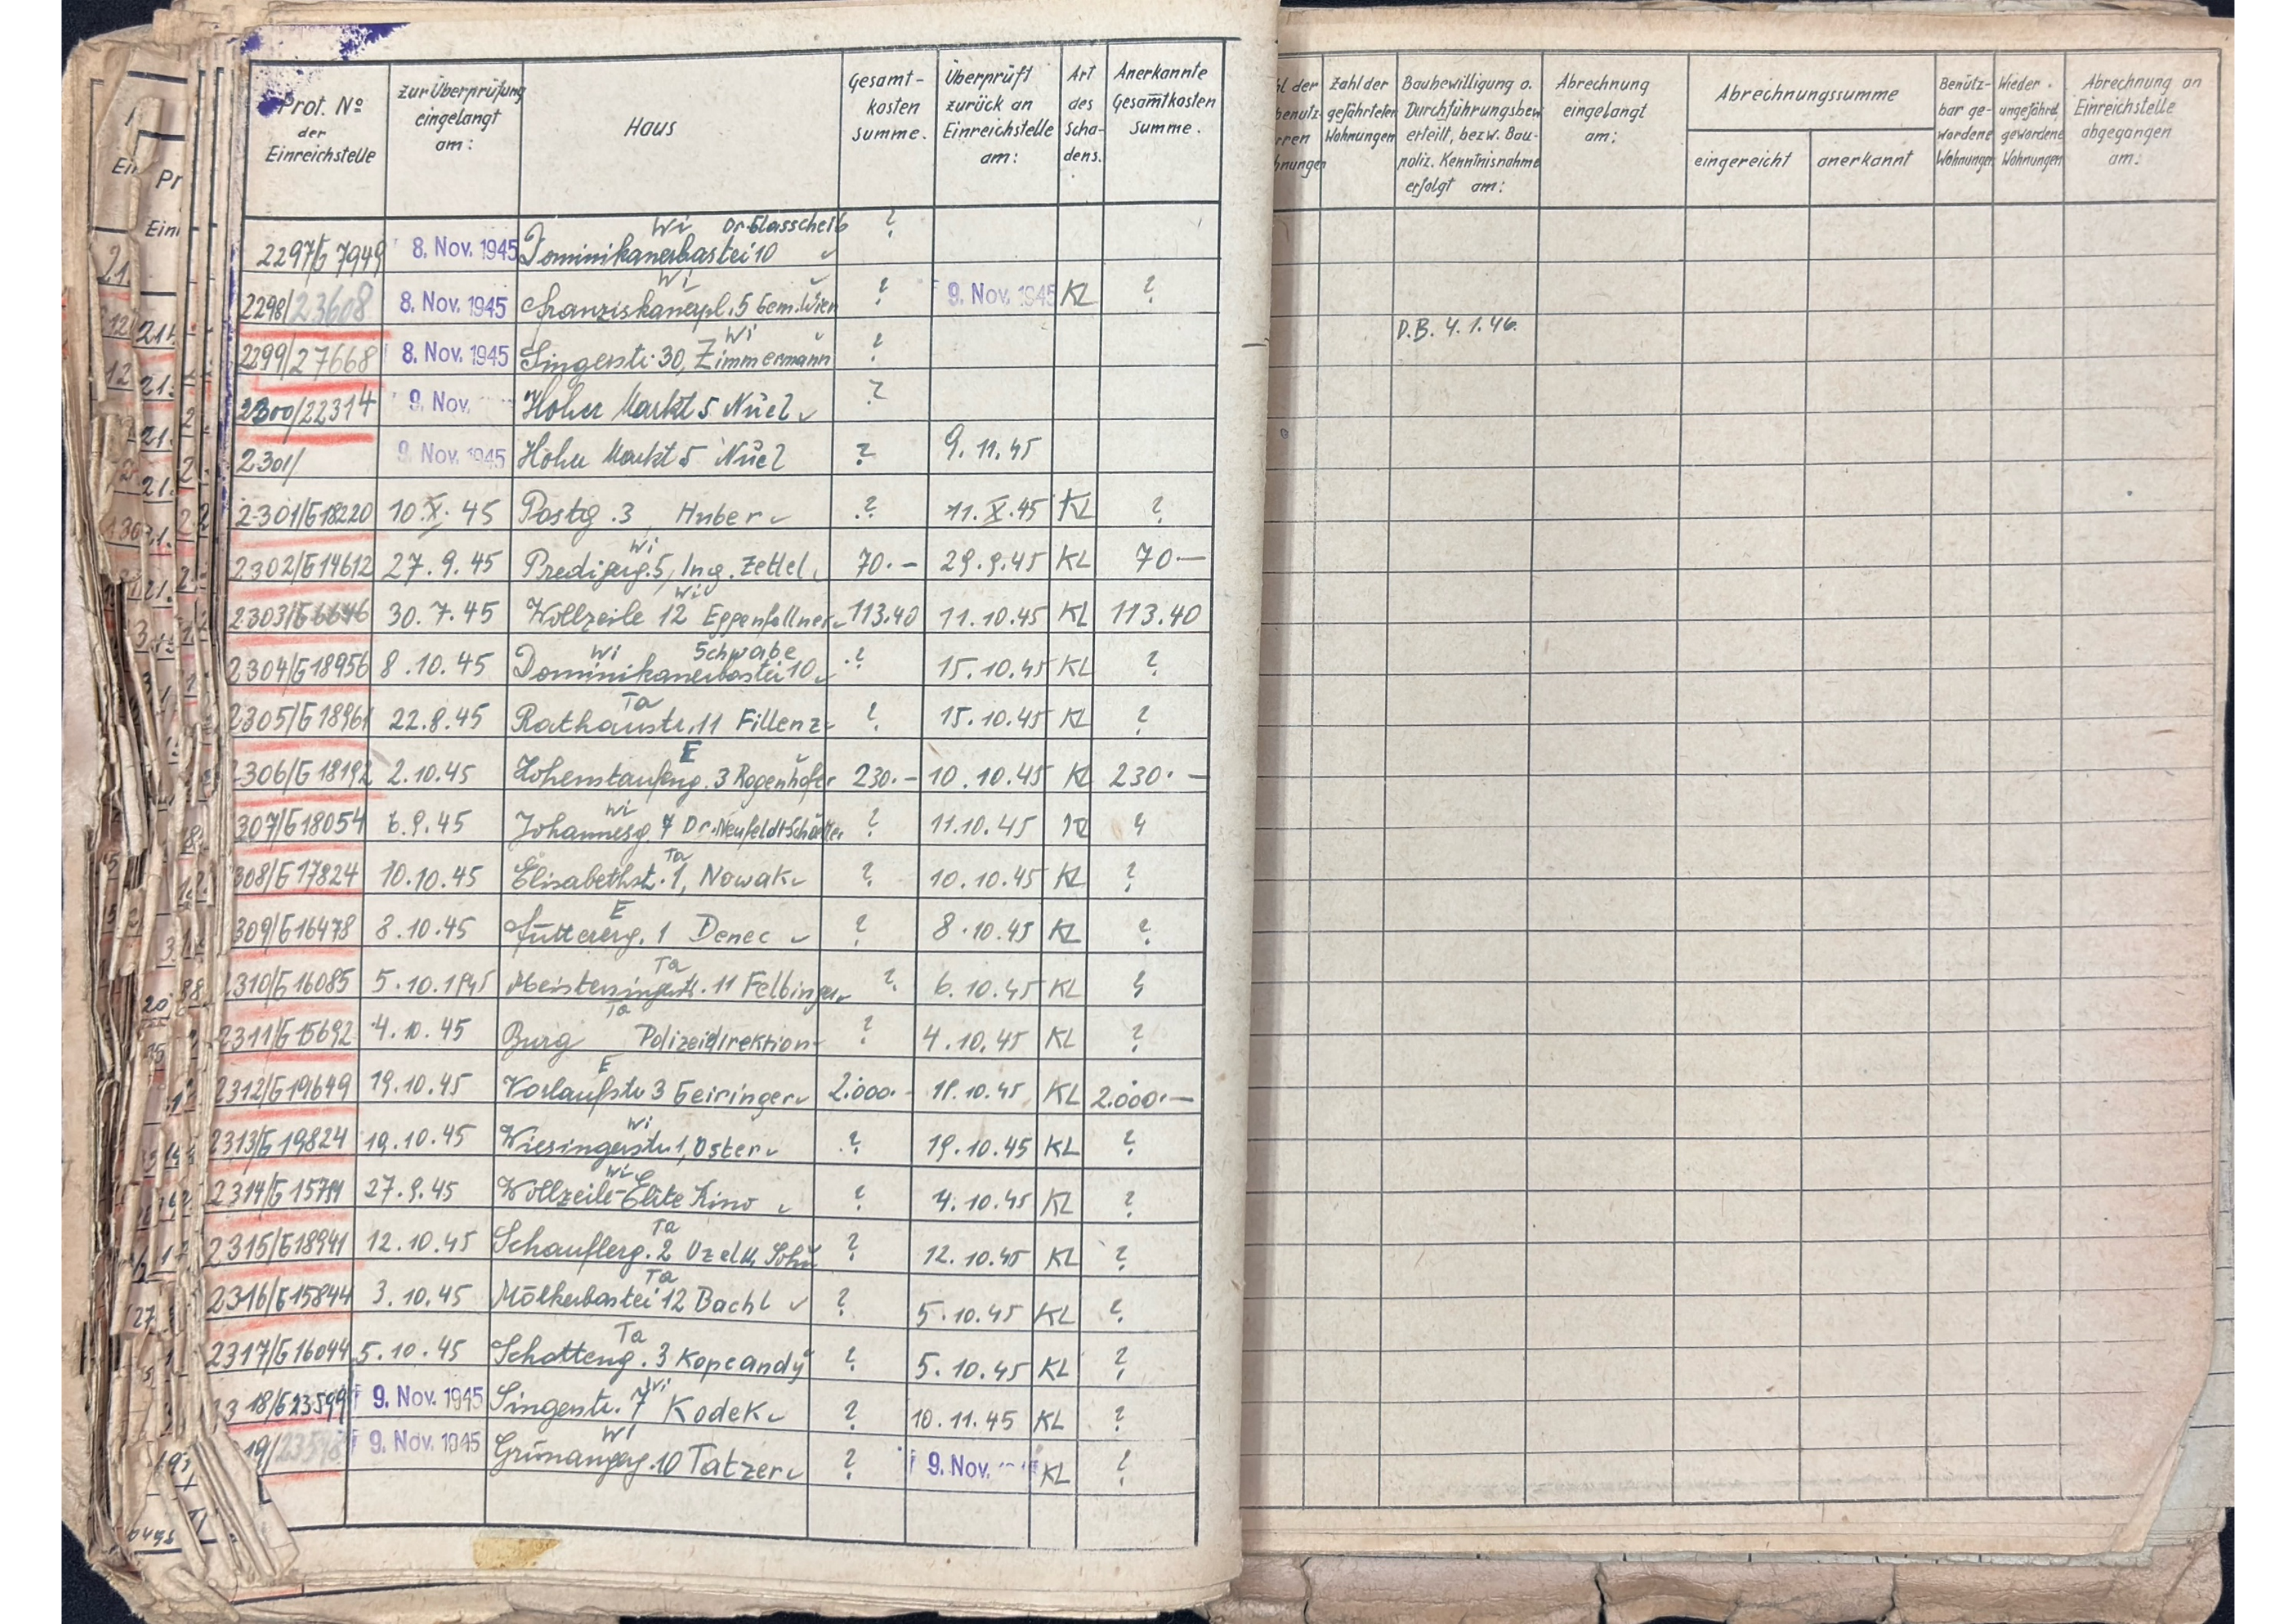 Prot. No der Einreichstelle | zur Überprüfung eingelangt am: | Haus | Gesamt-kosten summe. | Überprüft zurück an Einreichstelle am: | Art des Scha-dens. | Anerkannte Gesamtkosten Summe. | Zahl der gefährteten Wohnungen | Baubewilligung o. Durchführungsbew. erteilt, bezw. Bau-poliz. Kenntnisnahme erfolgt am: | Abrechnung eingelangt am: | Abrechnungssumme eingereicht | anerkannt | Benütz-bar ge-wordene Wohnungen | Wieder ungefährd. gewordene Wohnungen | Abrechnung an Einreichstelle abgegangen am:
Wi Dr. Glasscheib
2297/G 7949 8. Nov. 1945 Dominikanerbastei 10 ?
Wi
2298/23608 8. Nov. 1945 Franziskanerpl. 5 Gem. Wien ? 9. Nov. 1945 KL ?
Wi
2299/27668 8. Nov. 1945 Singerstr. 30, Zimmermann ? D.B. 4.1.46.
2300/22314 9. Nov. Hoher Markt 5 ?
2301/ 9. Nov. 1945 Hoher Markt 5 ? 9.11.45
2301/G18220 10.X.45 Postg. 3 Huber ? 11.X.45 KL ?
Wi
2302/G14612 27.9.45 Predigerg. 5, Ing. Zettel 70.- 29.9.45 KL 70.—
Wi
2303/G6646 30.7.45 Wollzeile 12 Eggenfellner 113.40 11.10.45 KL 113.40
Wi Schwabe
2304/G18956 8.10.45 Dominikanerbastei 10 ? 15.10.45 KL ?
Ta
2305/G18961 22.8.45 Rathausstr. 11 Fillenz ? 15.10.45 KL ?
E
2306/G18192 2.10.45 Hohenstaufeng. 3 Rogenhofer 230.- 10.10.45 KL 230.—
Wi
307/G18054 6.9.45 Johannesg. 7 Dr. Neufeldt ? 11.10.45 KL ?
Ta
308/G17824 10.10.45 Elisabethst. 1, Nowak ? 10.10.45 KL ?
E
309/G16478 8.10.45 Füttererg. 1 Denec ? 8.10.45 KL ?
Ta
2310/G16085 5.10.1945 11 Felbinger ? 6.10.45 KL ?
Ta
2311/G15692 4.10.45 Burg Polizeidirektion ? 4.10.45 KL ?
E
2312/G19649 19.10.45 Vorlaufstr 3 Geiringer 2.000.- 18.10.45 KL 2.000.—
Wi
2313/G19824 19.10.45 Wiesingerstr 1, Oster ? 19.10.45 KL ?
Wi
2314/G 27.9.45 Wollzeile-Elite Kino ? 4.10.45 KL ?
Ta
2315/G18941 12.10.45 Schauflerg. 2 Uzel u. Sohn ? 12.10.45 KL ?
Ta
2316/G15844 3.10.45 Mölkerbastei 12 Bachl ? 5.10.45 KL ?
Ta
2317/G16044 5.10.45 Schotteng. 3 Kopcandy ? 5.10.45 KL ?
Wi
18/G23599 9. Nov. 1945 Singerstr. 7 Kodek ? 10.11.45 KL ?
Wi
19/ 9. Nov. 1945 Grünangerg. 10 Tatzer ? 9. Nov. KL ?